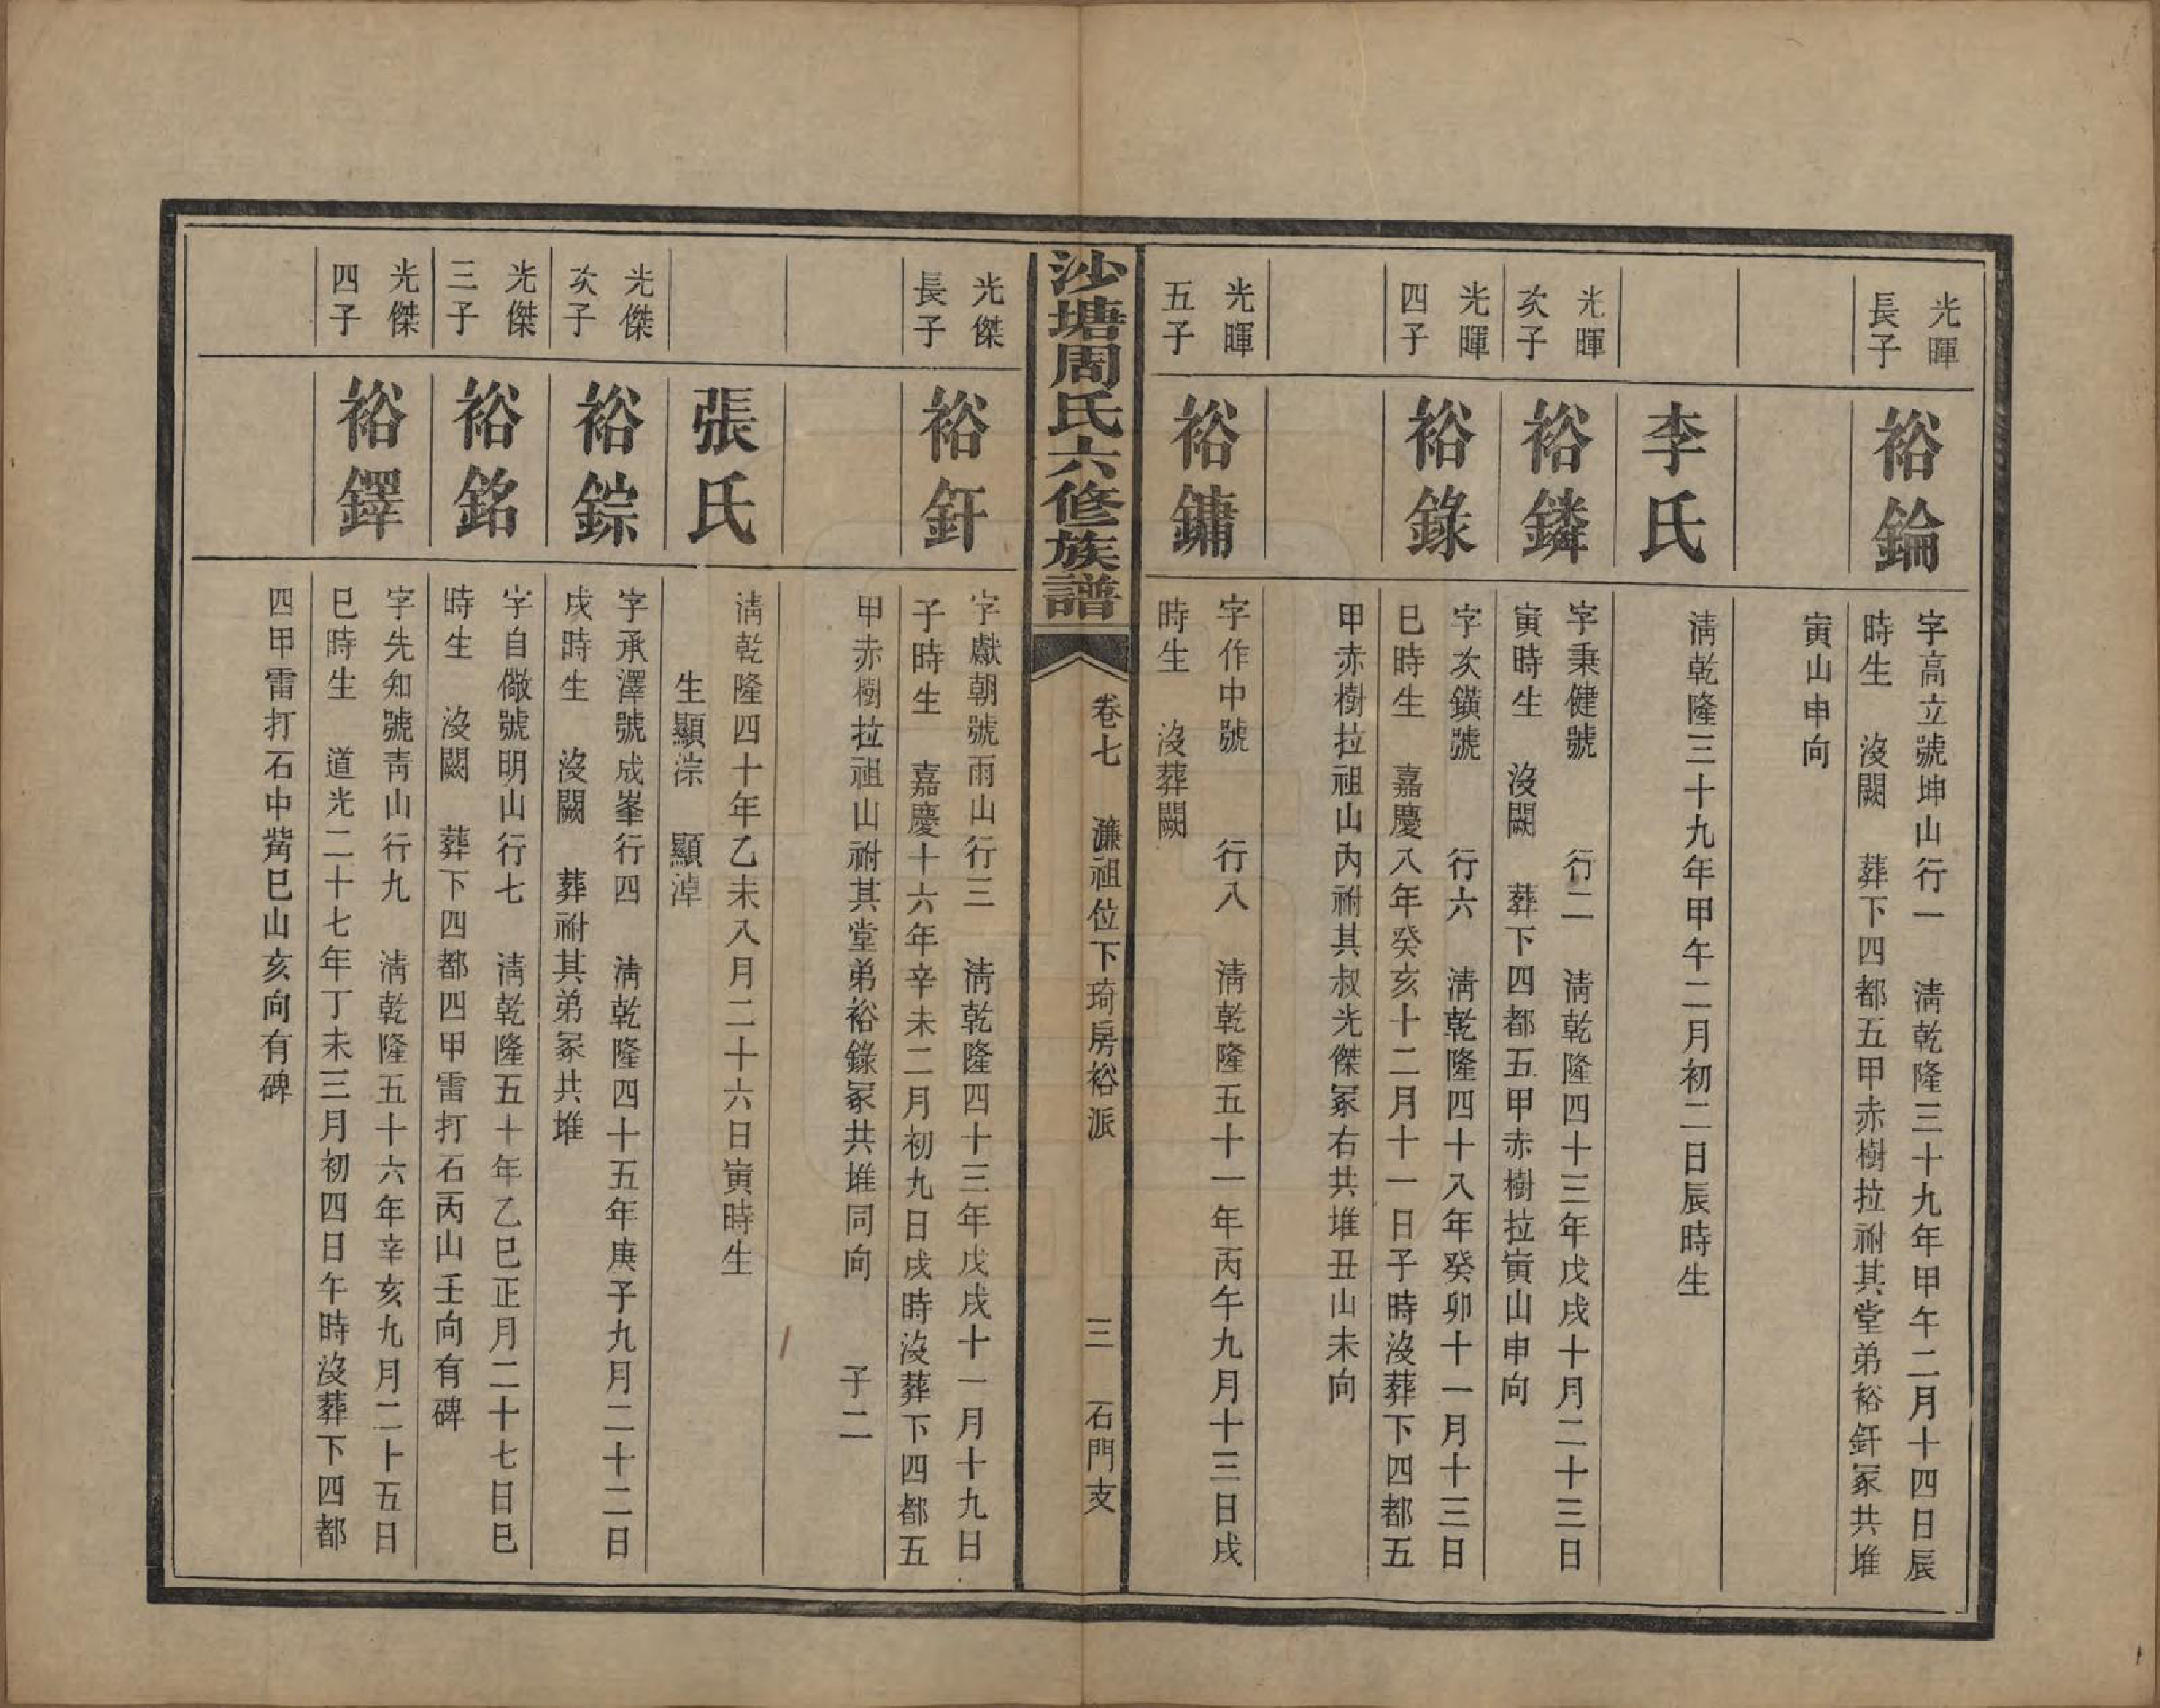 光暉
長子
裕錀
字高立號坤山行一　淸乾隆三十九年甲午二月十四日辰
時生　沒闕　葬下四都五甲赤樹拉祔其堂弟裕釬冢共堆
寅山申向
李氏
淸乾隆三十九年甲午二月初二日辰時生
光暉
次子
裕鏻
字秉健號　　行二　淸乾隆四十三年戊戌十月二十三日
寅時生　沒闕　葬下四都五甲赤樹拉寅山申向
光暉
四子
裕錄
字次鐄號　　行六　淸乾隆四十八年癸卯十一月十三日
巳時生　嘉慶八年癸亥十二月十一日子時沒葬下四都五
甲赤樹拉祖山內祔其叔光傑冢右共堆丑山未向
光暉
五子
裕鏞
字作中號　　行八　淸乾隆五十一年丙午九月十三日戌
時生　沒葬闕
沙塘周氏六修族譜
卷七　濂祖位下琦房裕派　三　石門支
光傑
長子
裕釬
字獻朝號雨山行三　淸乾隆四十三年戊戌十一月十九日
子時生　嘉慶十六年辛未二月初九日戌時沒葬下四都五
甲赤樹拉祖山祔其堂弟裕錄冢共堆同向　　子二
張氏
淸乾隆四十年乙未八月二十六日寅時生
生顯淙　顯淖
光傑
次子
裕錝
字承澤號成峯行四　淸乾隆四十五年庚子九月二十二日
戌時生　沒闕　葬祔其弟冢共堆
光傑
三子
裕銘
字自儆號明山行七　淸乾隆五十年乙巳正月二十七日巳
時生　沒闕　葬下四都四甲雷打石丙山壬向有碑
光傑
四子
裕鐸
字先知號靑山行九　淸乾隆五十六年辛亥九月二十五日
巳時生　道光二十七年丁未三月初四日午時沒葬下四都
四甲雷打石中嵴巳山亥向有碑